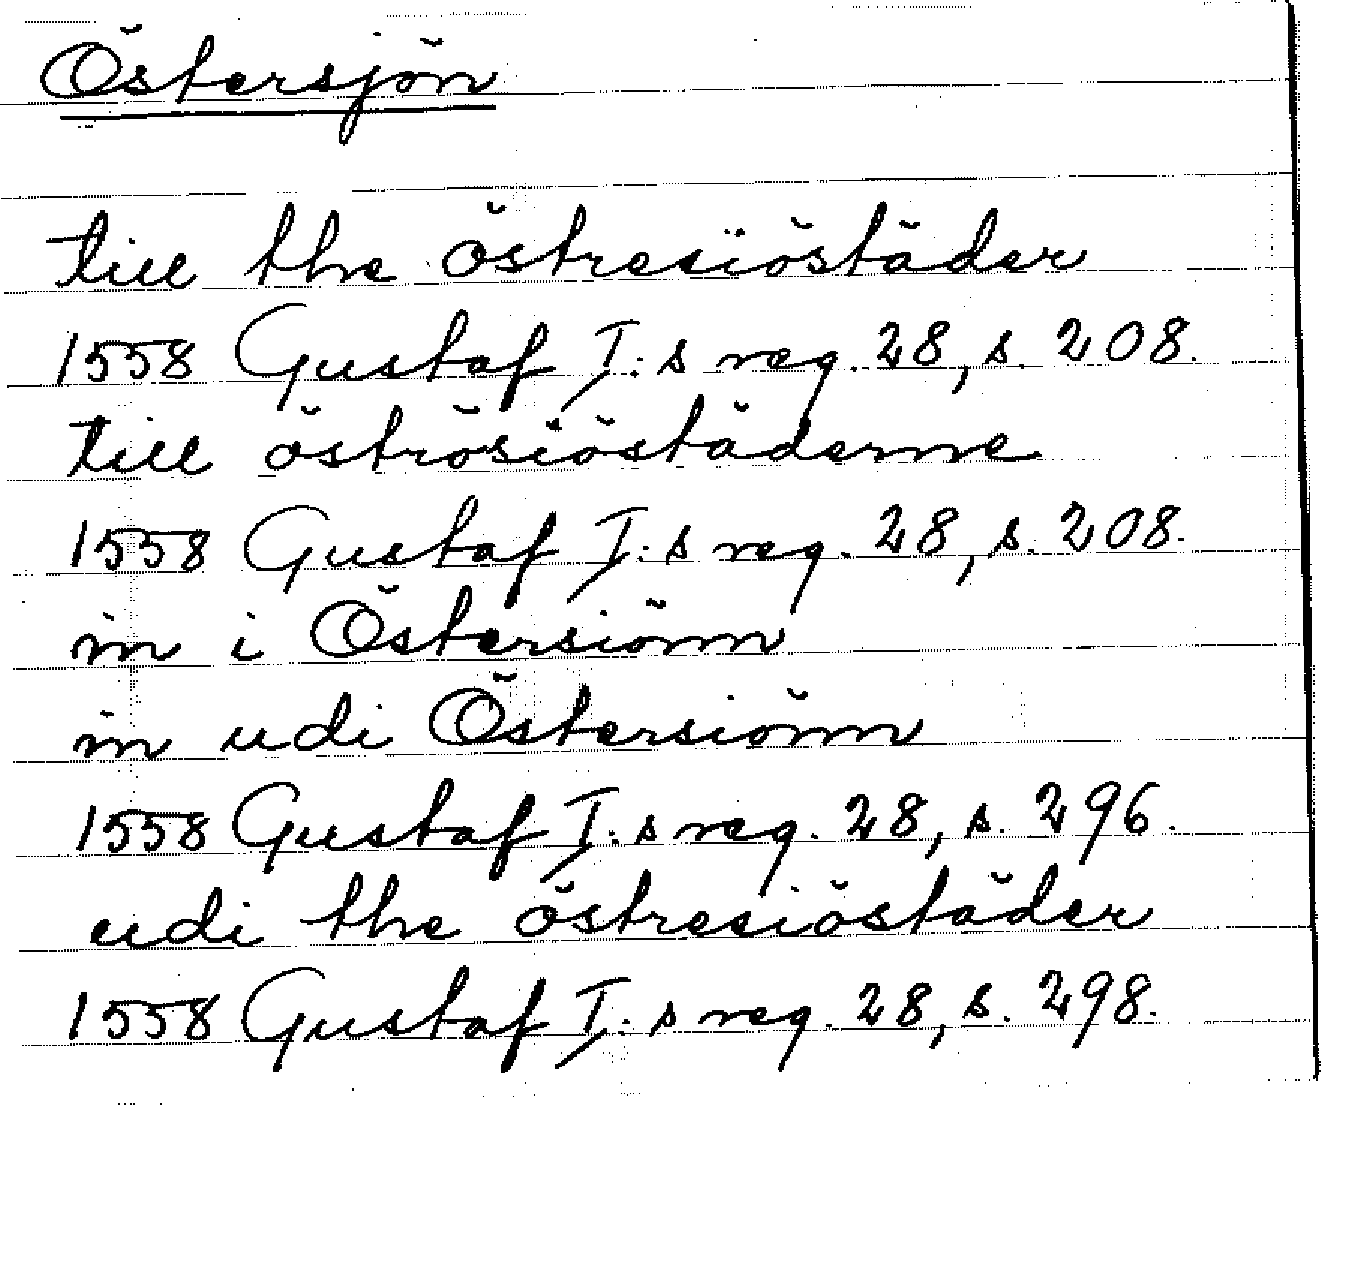 Östersjön
till the östresiöstäder
1558 Gustaf I:s reg. 28, s. 208.
till öströsiöstäderne
1558 Gustaf I:s reg. 28, s. 208.
in i Östersiönn
in udi Östersiönn
1558 Gustaf I:s reg. 28, s. 296.
udi the östresiöstäder
1558 Gustaf I:s reg. 28, s. 298.